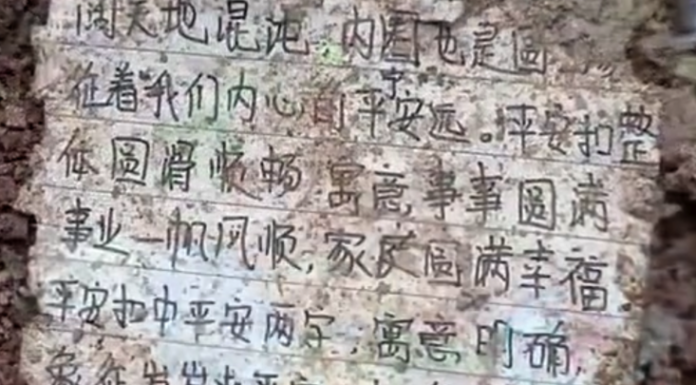 阔天地混沌,内圆也是圆
征着我们内心的平安远。平安扣整
体圆滑顺畅 寓意事事圆满
事业一帆风顺,家庭圆满幸福
平安扣中平安两字,寓意明确,